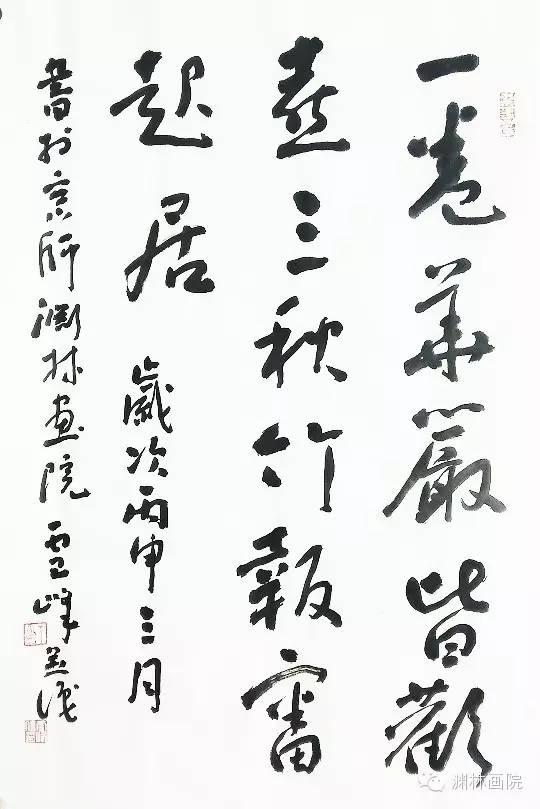 一卷華嚴皆歡
喜三秋竹報審
起居 歲次丙申三月
書於京師淵林画院 雪峰並識
渊林画院